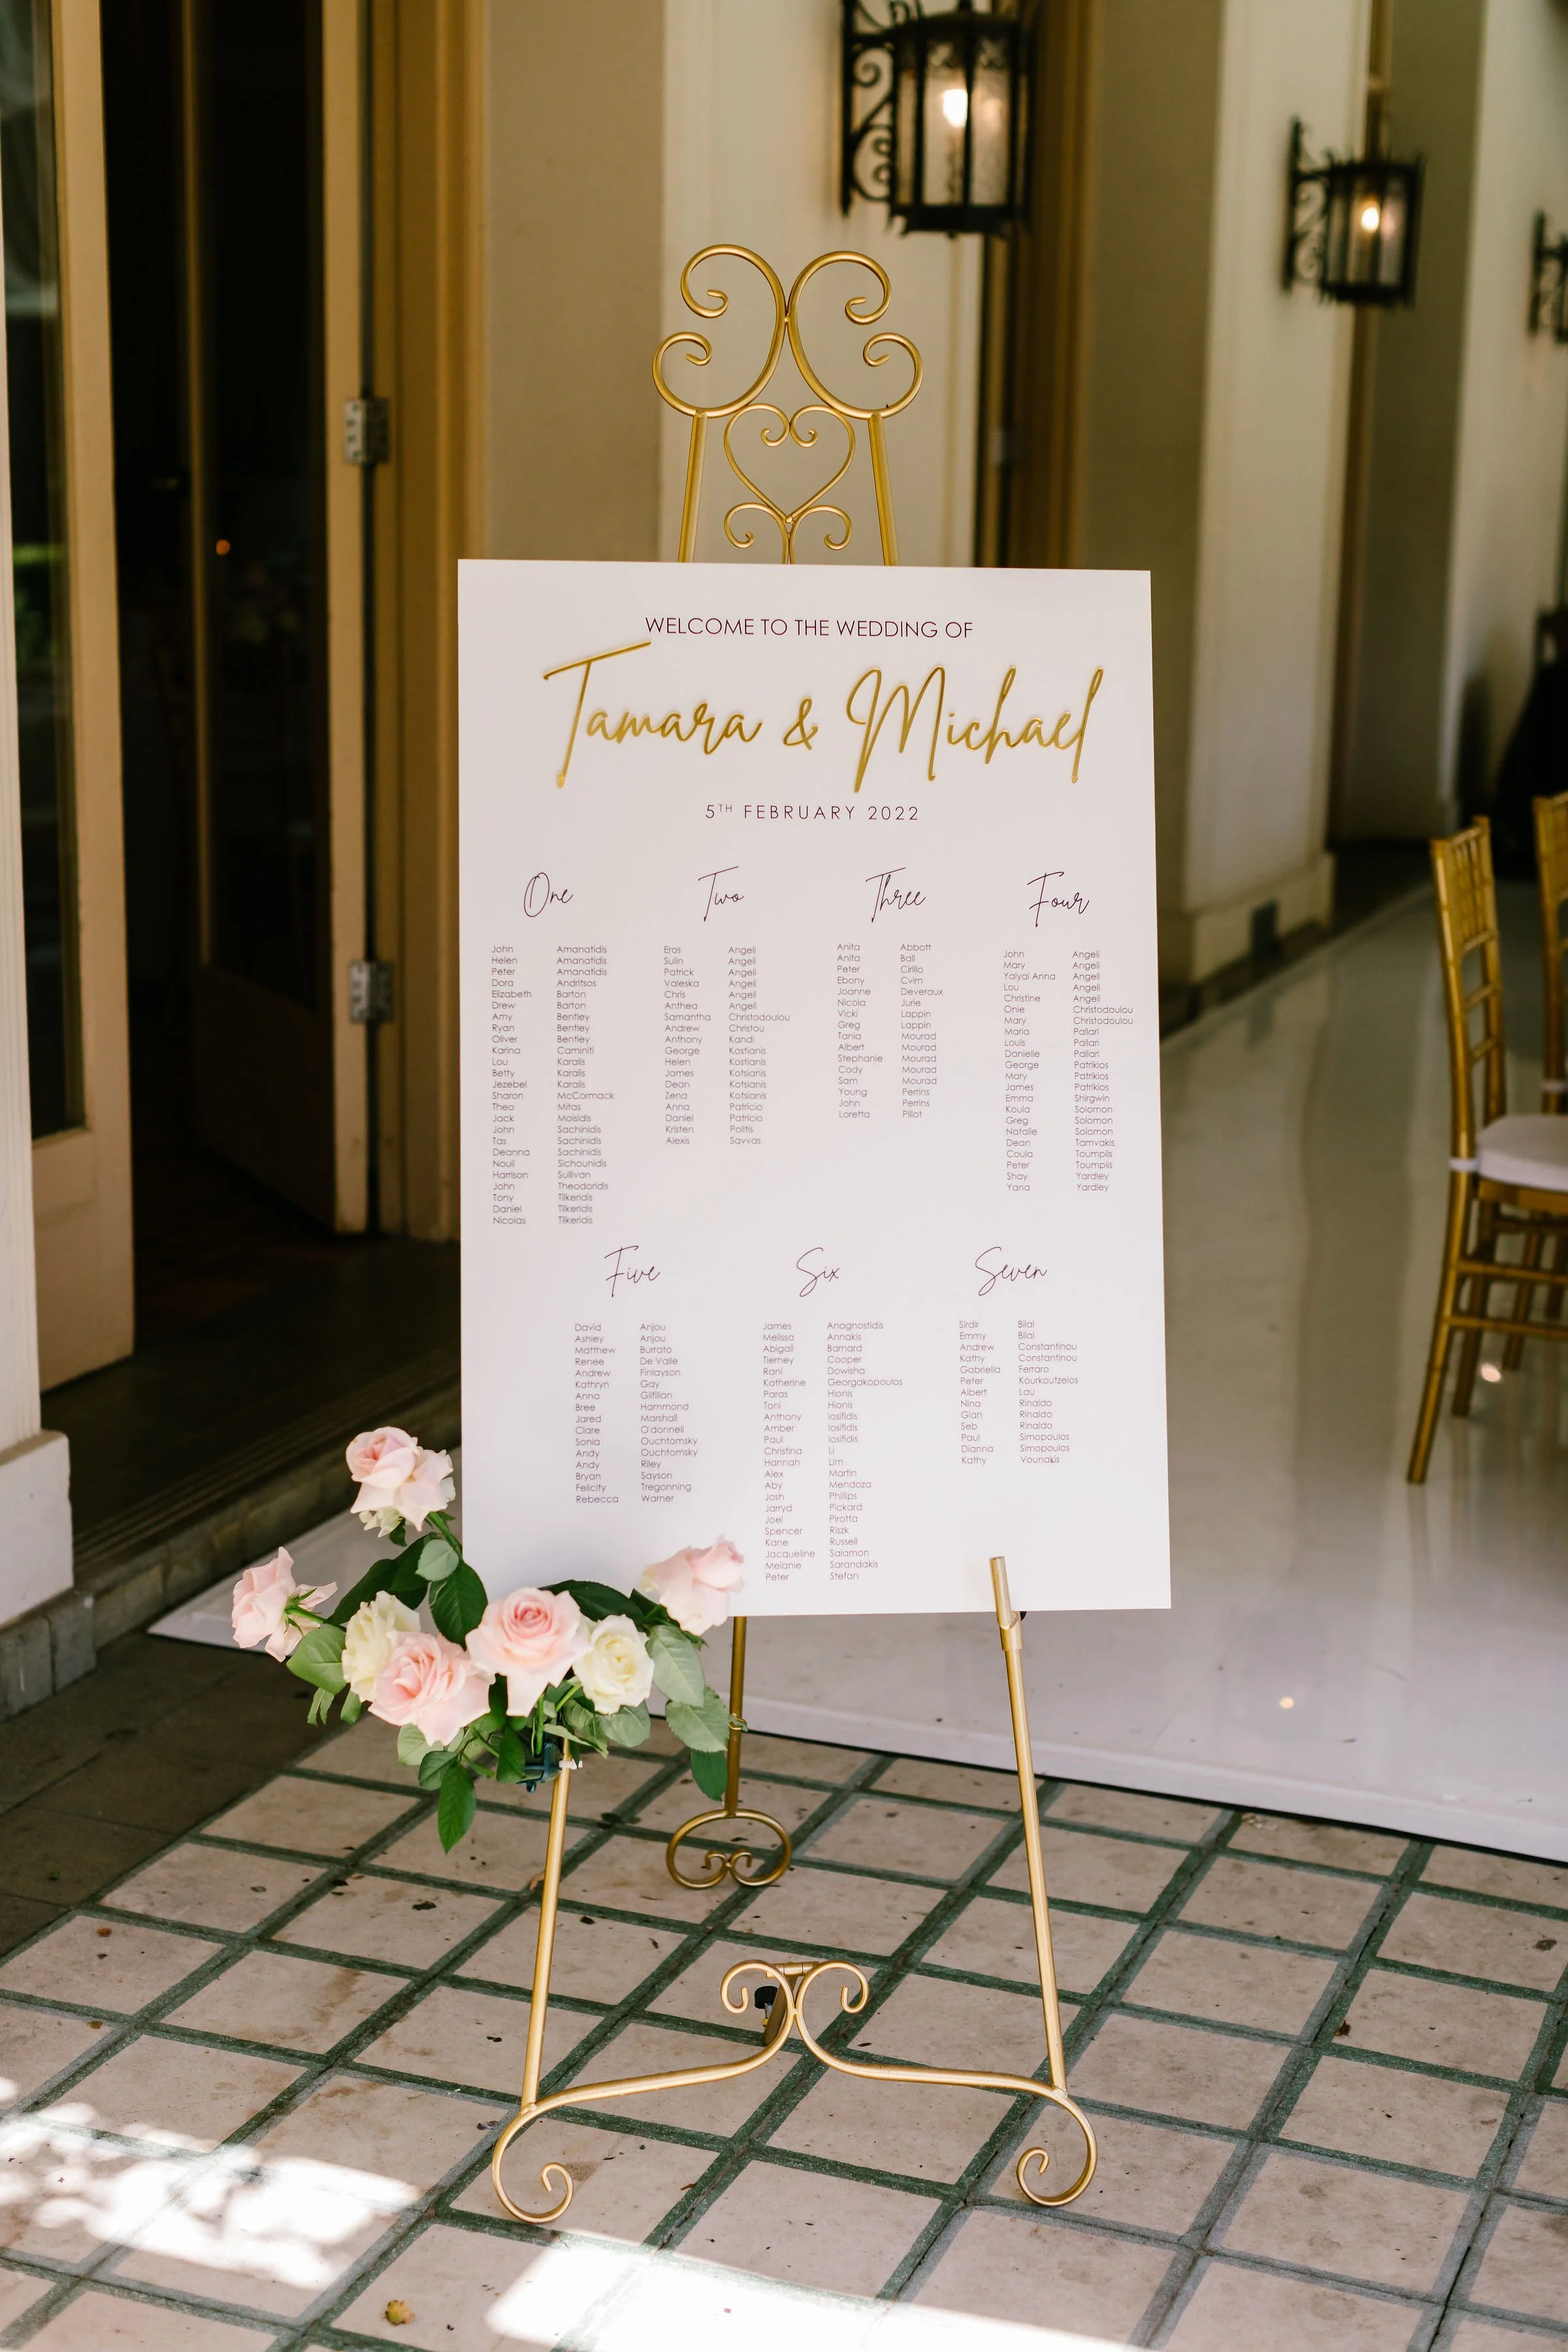 WELCOME TO THE WEDDING OF
Tamara & Michael
5TH FEBRUARY 2022
One
John Amanatidis
Helen Amanatidis
Peter Amanatidis
Dora Andritsos
Elizabeth Barton
Drew Barton
Amy Bentley
Ryan Bentley
Oliver Bentley
Karina Caminiti
Lou Karalis
Betty Karalis
Jezebel Karalis
Sharon McCormack
Theo Mitas
Jack Moisidis
John Sachinidis
Tas Sachinidis
Deanna Sachinidis
Nouli Sichounidis
Harrison Sullivan
John Theodoridis
Tony Tilkeridis
Daniel Tilkeridis
Nicolas Tilkeridis
Two
Eros Angeli
Sulin Angeli
Patrick Angeli
Valeska Angeli
Chris Angeli
Anthea Angeli
Samantha Christodoulou
Andrew Christou
Anthony Kandi
George Kostianis
Helen Kostianis
James Kotsianis
Dean Kotsianis
Zena Kotsianis
Anna Patricio
Daniel Patricio
Kristen Politis
Alexis Savvas
Three
Anita Abbott
Anita Ball
Peter Cirillo
Ebony Cvirn
Joanne Deveraux
Nicola Jurie
Vicki Lappin
Greg Lappin
Tania Mourad
Albert Mourad
Stephanie Mourad
Cody Mourad
Sam Mourad
Young Perrins
John Perrins
Loretta Pillot
Four
John Angeli
Mary Angeli
Yaiyai Anna Angeli
Lou Angeli
Christine Angeli
Onie Christodoulou
Mary Christodoulou
Maria Pallari
Louis Pallari
Danielle Pallari
George Patrikios
Mary Patrikios
James Patrikios
Emma Shirgwin
Koula Solomon
Greg Solomon
Natalie Solomon
Dean Tamvakis
Coula Toumplis
Peter Toumplis
Shay Yardley
Yana Yardley
Five
David Anjou
Ashley Anjou
Matthew Burrato
Renee De Valle
Andrew Finlayson
Kathryn Gay
Anna Gilfillan
Bree Hammond
Jared Marshall
Clare O'donnell
Sonia Ouchtomsky
Andy Ouchtomsky
Andy Riley
Bryan Sayson
Felicity Tregonning
Rebecca Warner
Six
James Anagnostidis
Melissa Annakis
Abigail Barnard
Tierney Cooper
Rani Dowisha
Katherine Georgakopoulos
Paras Hionis
Toni Hionis
Anthony Iosifidis
Amber Iosifidis
Paul Iosifidis
Christina Li
Hannah Lim
Alex Martin
Aby Mendoza
Josh Phillips
Jarryd Pickard
Joel Pirotta
Spencer Riszk
Kane Russell
Jacqueline Salamon
Melanie Sarandakis
Peter Stefan
Seven
Sirdir Bilal
Emmy Bilal
Andrew Constantinou
Kathy Constantinou
Gabriella Ferraro
Peter Kourkoutzelos
Albert Lau
Nina Rinaldo
Gian Rinaldo
Seb Rinaldo
Paul Simopoulos
Dianna Simopoulos
Kathy Vounakis